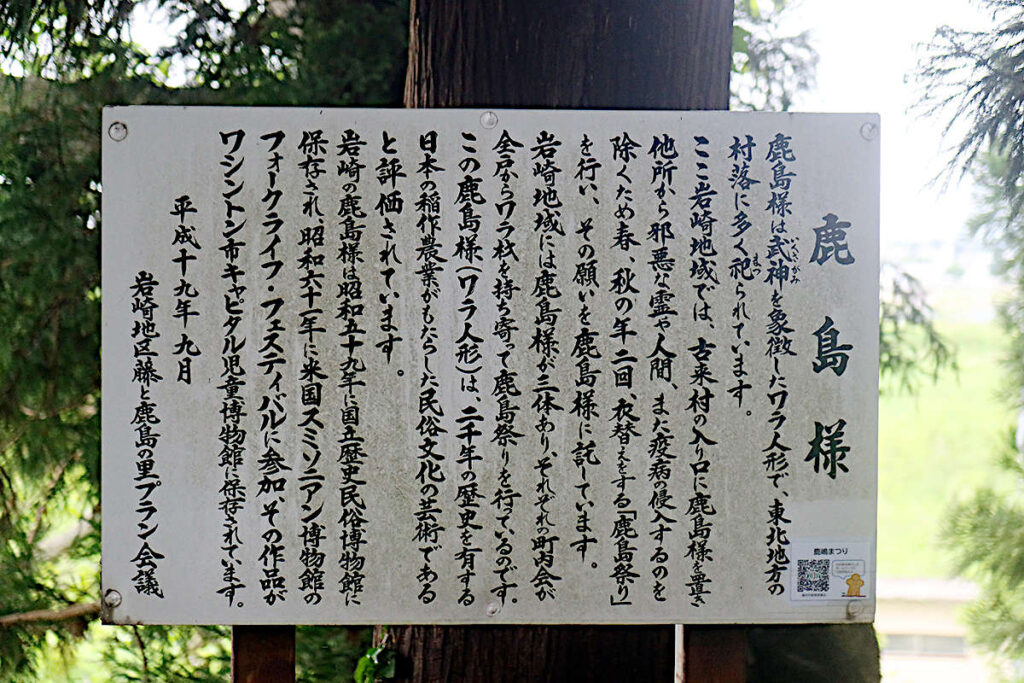 鹿島様
鹿島様は武神を象徴したワラ人形で、東北地方の
村落に多く祀られています。
ここ岩崎地域では、古来村の入り口に鹿島様を置き
他所から邪悪な霊や人間、また疫病の侵入するのを
除くため春、秋の年二回、衣替えをする「鹿島祭り」
を行い、その願いを鹿島様に託しています。
岩崎地域には鹿島様が三体あり、それぞれの町内会が
全戸からワラ杖を持ち寄って鹿島祭りを行っているのです。
この鹿島様(ワラ人形)は、二千年の歴史を有する
日本の稲作農業がもたらした民俗文化の芸術である
と評価されています。
岩崎の鹿島様は昭和五十九年に国立歴史民俗博物館に
保存され、昭和六十一年に米国スミソニアン博物館の
フォークライフ・フェスティバルに参加、その作品が
ワシントン市キャピタル児童博物館に保存されています。
平成十九年九月
岩崎地区藤と鹿島の里プラン会議
鹿嶋まつり